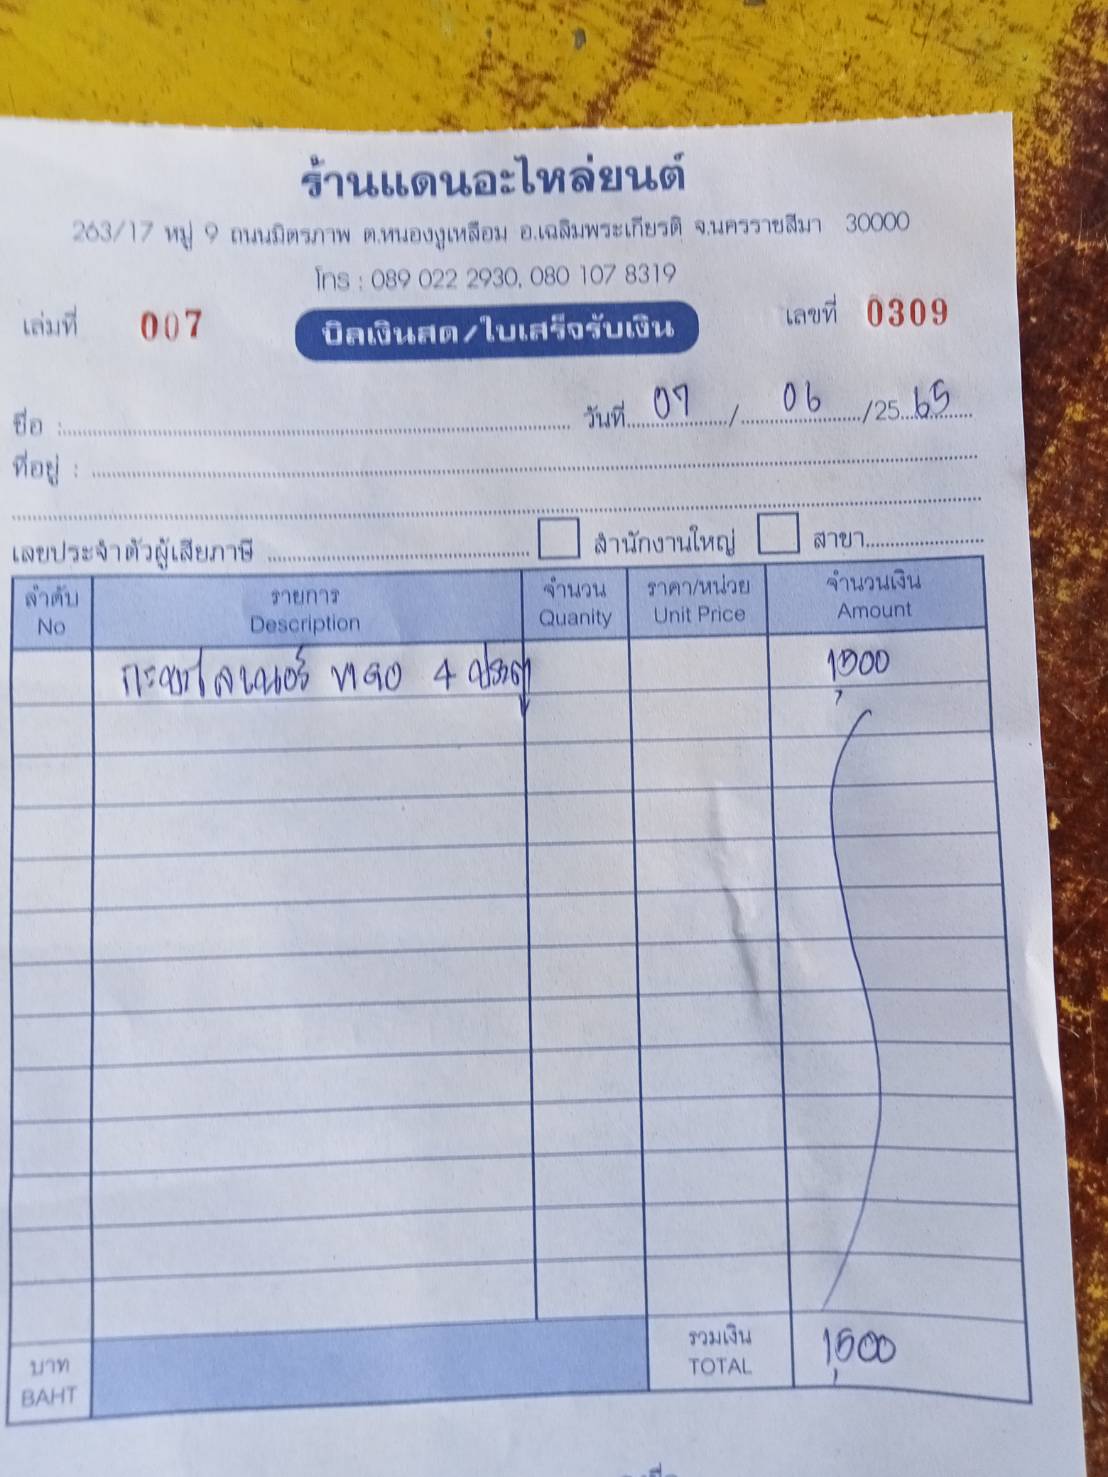 ร้านแดนอะไหล่ยนต์
263/17 หมู่ 9 ถนนมิตรภาพ ต.หนองงูเหลือม อ.เฉลิมพระเกียรติ จ.นครราชสีมา 30000
โทร : 089 022 2930, 080 107 8319
เล่มที่ 007 บิลเงินสด/ใบเสร็จรับเงิน เลขที่ 0309
ชื่อ : วันที่ 07 / 06 /25 65
ที่อยู่ :
เลขประจำตัวผู้เสียภาษี สำนักงานใหญ่ สาขา
ลำดับ รายการ จำนวน ราคา/หน่วย จำนวนเงิน
No Description Quanity Unit Price Amount
กะบะ 4 ประตู 1,500
รวมเงิน
บาท TOTAL 1,500
BAHT